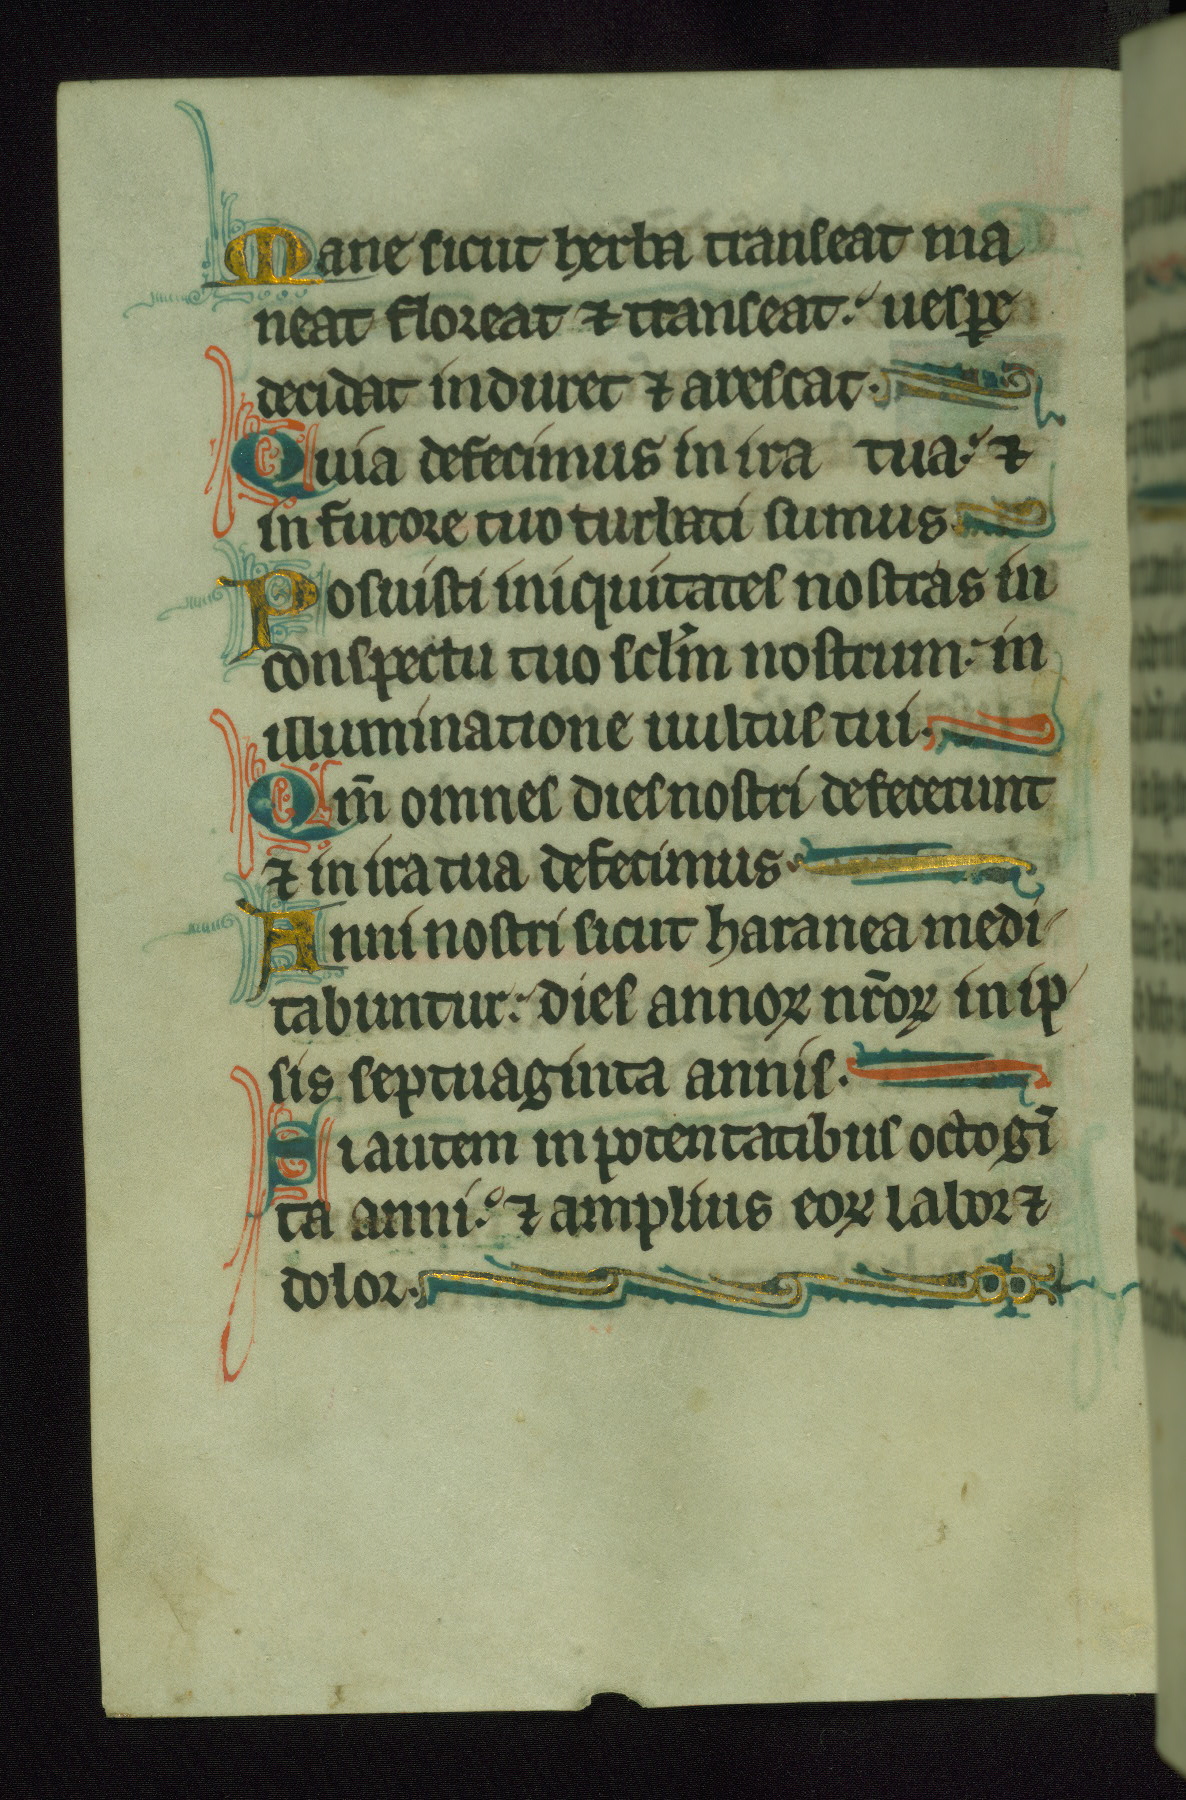 Mane sicut herba transeat ma
neat floreat ⁊ transeat. uespe
decidat induret ⁊ arescat.
Quia defecimus in ira tua. ⁊
in furore tuo turbati sumus
Posuisti iniquitates nostras in
conspectu tuo sclm̄ nostrum. in
illuminatione uultus tui.
Qm̄ omnes dies nostri defecerunt
⁊ in ira tua defecimus.
Anni nostri sicut haranea medi
tabuntur. dies annoꝝ nr̄oꝝ in ip
sis septuaginta annis.
Si autem in potentatibus octogī
ta anni. ⁊ amplius eoꝝ labor ⁊
dolor.